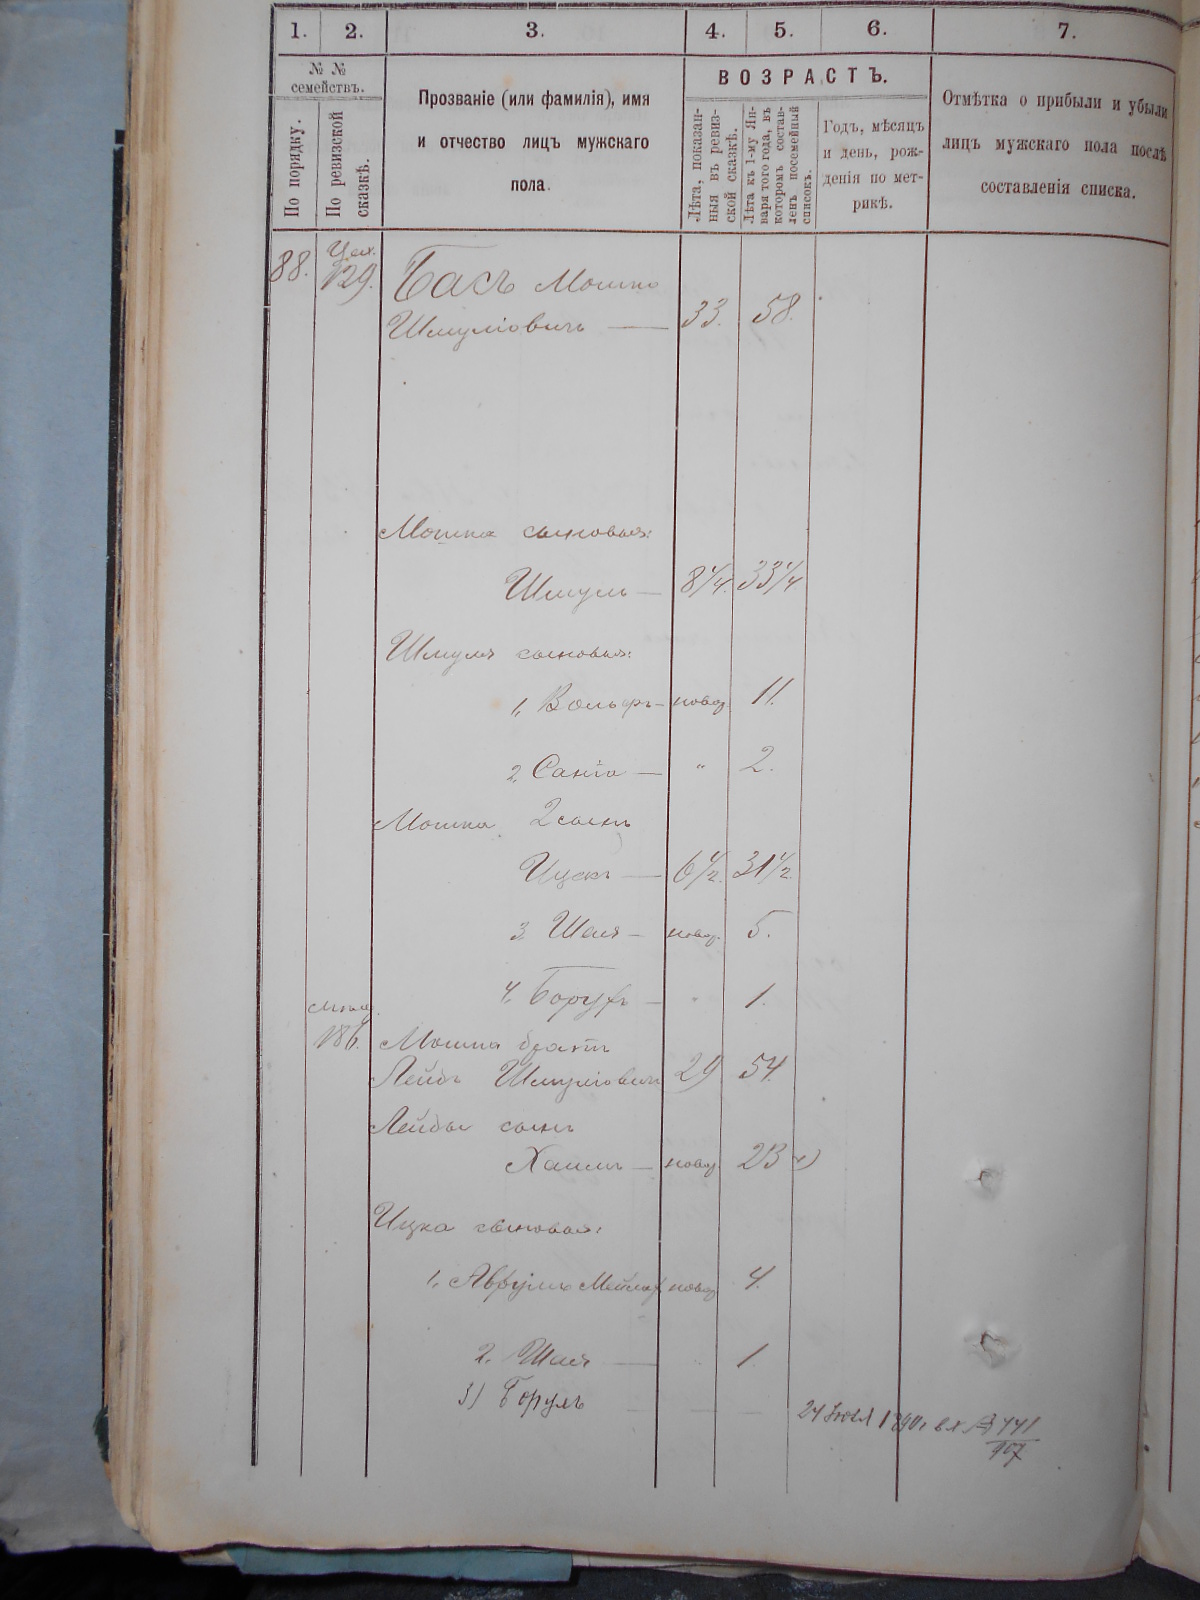 1. 2. 3. 4. 5. 6. 7.
№ №
семействъ.
По порядку.
По ревизской
сказкѣ.
Прозваніе (или фамилія), имя
и отчество лицъ мужскаго
пола.
ВОЗРАСТЪ.
Лѣта, показан-
ныя въ ревиз-
ской сказкѣ.
Лѣта къ 1-му Ян-
варя того года, въ
которомъ состав-
ленъ посемейный
списокъ.
Годъ, мѣсяцъ
и день, рож-
денія по мет-
рикѣ.
Отмѣтка о прибыли и убыли
лицъ мужскаго пола послѣ
составленія списка.
88. Цех. 129. Басъ Мошко
Шмуліовичъ — 33. 58.
Мошка сыновья:
Шмуль — 8 1/4. 33 1/4.
Шмуля сыновья:
1. Вольфъ — новор. 11.
2. — " 2.
Мошка 2 сынъ
Ицекъ — 6 1/2. 31 1/2.
3. Шая — новор. 5.
4. Борухъ — " 1.
186. Мошка братъ
Лейбъ Шмуліовичъ 29 54.
Лейбы сынъ
Хаимъ — новор. 23
Ицка сыновья:
1. Аврумъ новор. 4.
2. Шая — " 1.
3) — — —
24 1890 г. вх № 441